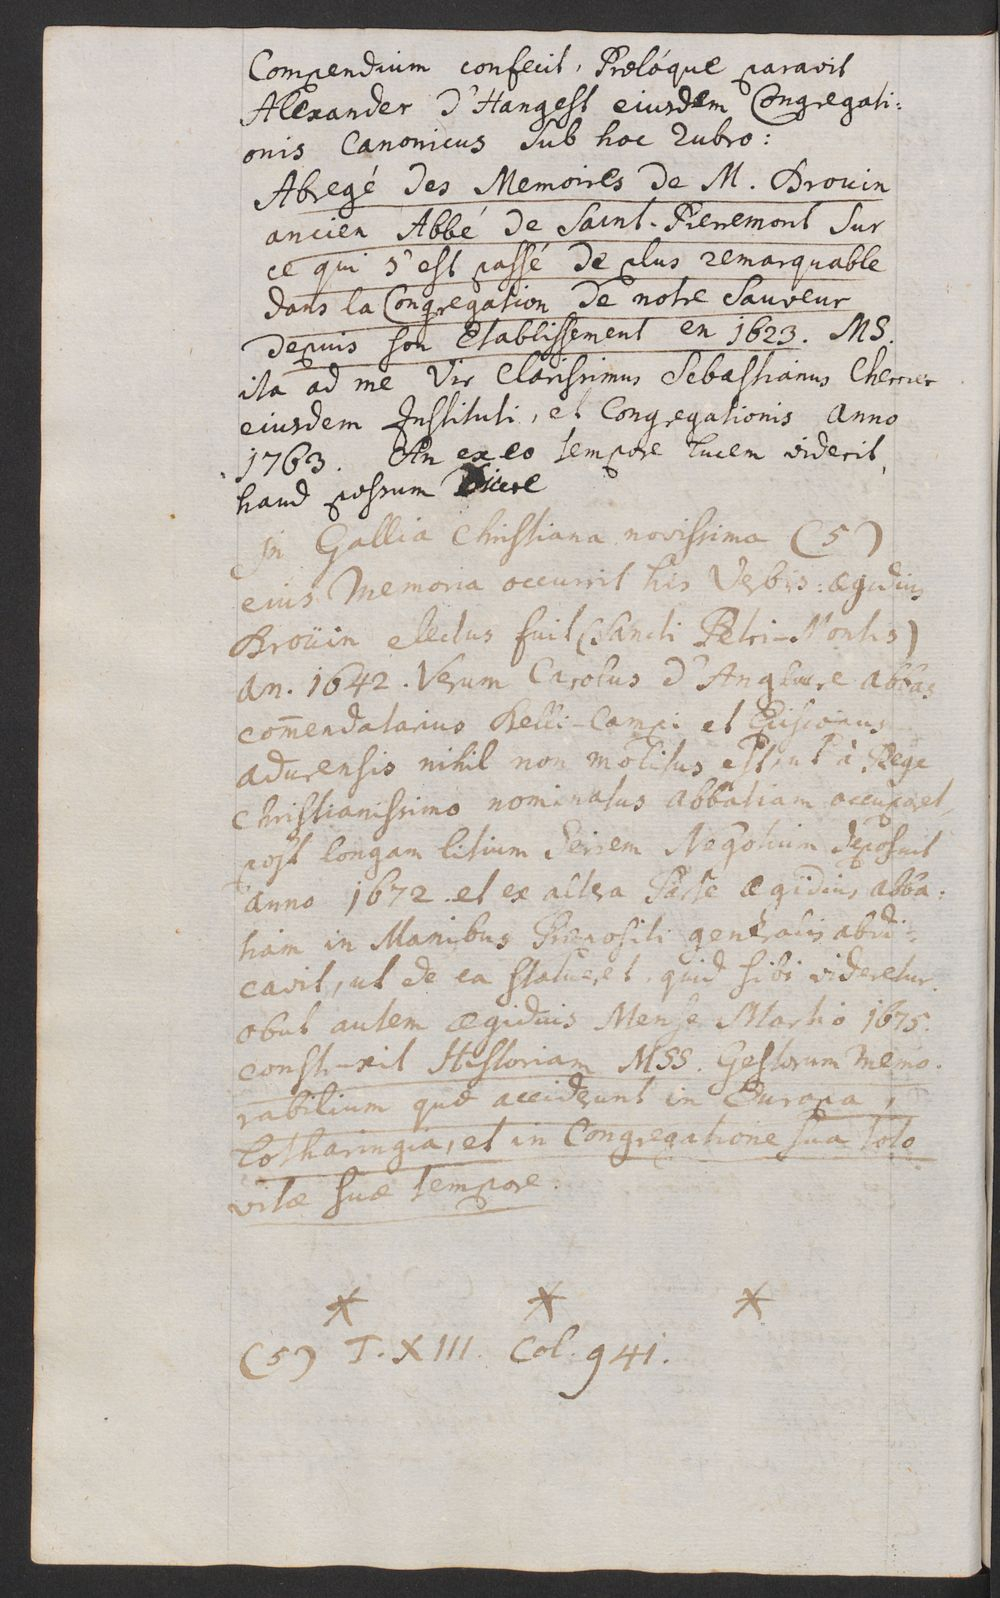 Compendium confecit, Prelóque paravit
Alexander d'Hangest eiusdem Congregati:
onis Canonicus sub hoc Rubro:
Abregé des Memoires de M. Drouin
ancien Abbé de Saint-Pierremont sur
ce qui s'est passé de plus remarquable
dans la Congregation de notre Sauveur
depuis son Etablissement en 1623. MS.
ita ad me Vir Clarissimus Sebastianus Cherrier
eiusdem Instituti, et Congregationis Anno
1763. An ex eo tempore lucem viderit,
haud possum dicere
In Gallia Christiana novissima (5)
eius Memoria occurrit his Verbis: ægidius
Droüin electus fuit (Sancti Petri-Montis)
an. 1642. Verum Carolus d'Anglure abbas
com̄endatarius Belli-Campi et Episcopus
adurensis nihil non molitus est, ut à Rege
Christianissimo nominatus abbatiam occuparet,
post longam litium Seriem Negotium deposuit
anno 1672. et ex altera Parte ægidius abba:
tiam in Manibus Præpositi generalis abdi:
cavit, ut de ea statueret, quid sibi videretur.
obiit autem ægidius Mense Martio 1675.
const-xit Historiam MSS. Gestorum memo.
rabilium quæ acciderunt in Europa,
Lotharingia, et in Congregatione sua toto
vitæ suæ tempore.
* * *
(5) T. XIII. Col. 941.